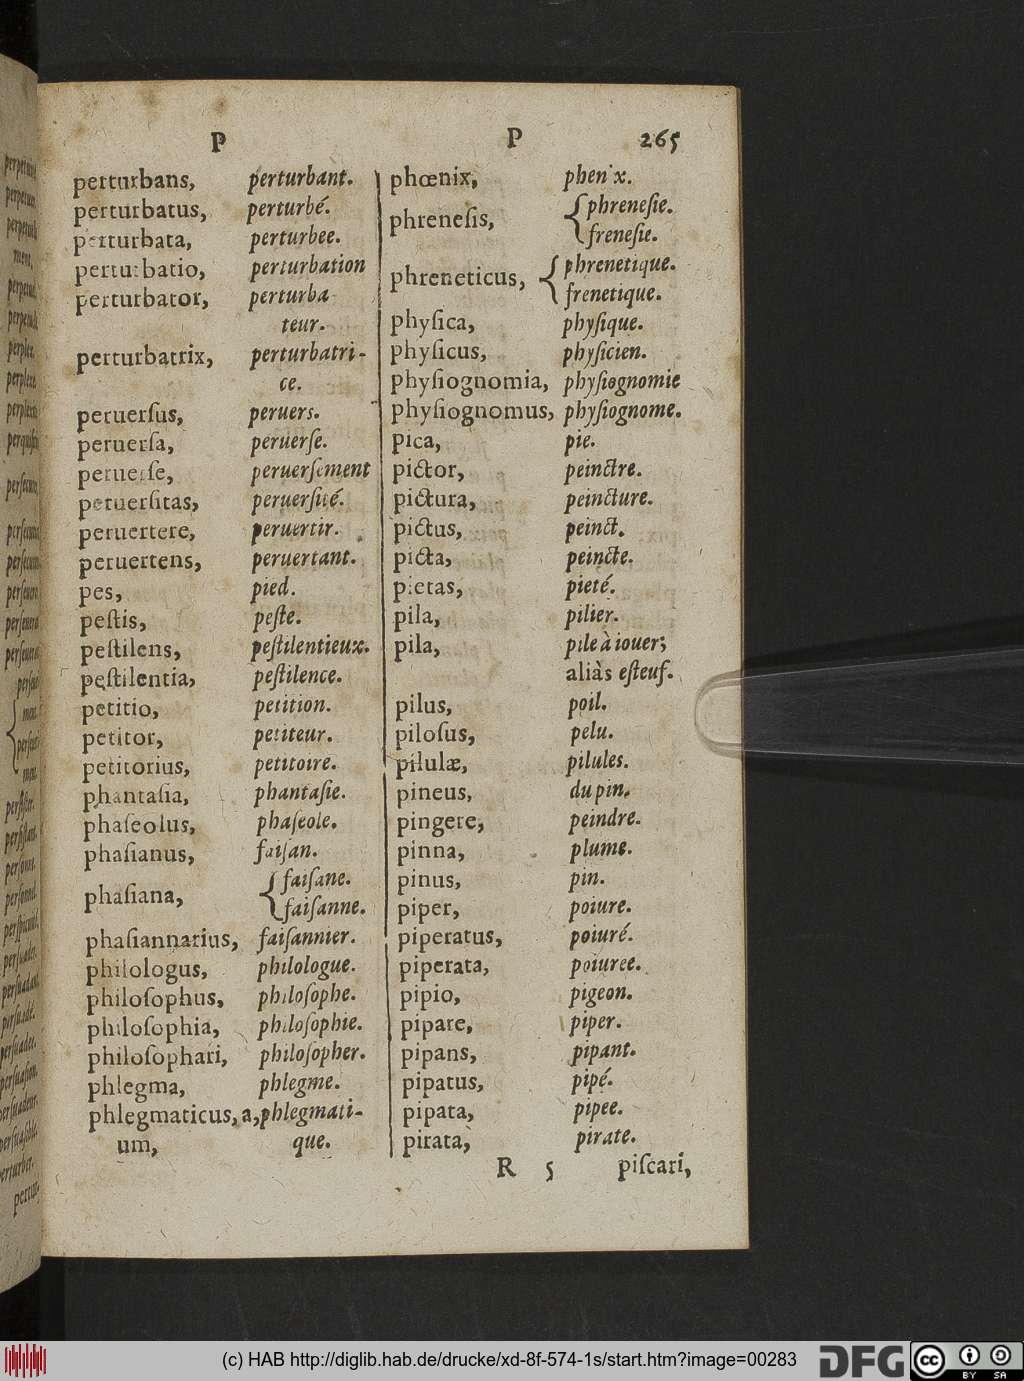 P P 265
perturbans, perturbant.
perturbatus, perturbé.
perturbata, perturbee.
perturbatio, perturbation
perturbator, perturba
teur.
perturbatrix, perturbatri-
ce.
peruerſus, peruers.
peruerſa, peruerſe.
peruerſe, peruerſement
peruerſitas, peruerſité.
peruertere, peruertir.
peruertens, peruertant.
pes, pied.
peſtis, peſte.
peſtilens, peſtilentieux.
peſtilentia, peſtilence.
petitio, petition.
petitor, petiteur.
petitorius, petitoire.
phantaſia, phantaſie.
phaſeolus, phaſeole.
phaſianus, faiſan.
phaſiana, { faiſane.
faiſanne.
phaſiannarius, faiſannier.
philologus, philologue.
philoſophus, philoſophe.
philoſophia, philoſophie.
philoſophari, philoſopher.
phlegma, phlegme.
phlegmaticus, a, phlegmati-
um, que.
phœnix, phenix.
phreneſis, { phreneſie.
freneſie.
phreneticus, { phrenetique.
frenetique.
phyſica, phyſique.
phyſicus, phyſicien.
phyſiognomia, phyſiognomie
phyſiognomus, phyſiognome.
pica, pie.
pictor, peinctre.
pictura, peincture.
pictus, peinct.
picta, peincte.
pietas, pieté.
pila, pilier.
pila, pile à iouer;
aliàs eſteuf.
pilus, poil.
piloſus, pelu.
pilulæ, pilules.
pineus, du pin.
pingere, peindre.
pinna, plume.
pinus, pin.
piper, poiure.
piperatus, poiuré.
piperata, poiuree.
pipio, pigeon.
pipare, piper.
pipans, pipant.
pipatus, pipé.
pipata, pipee.
pirata, pirate.
R 5 piſcari,
(c) HAB http://diglib.hab.de/drucke/xd-8f-574-1s/start.htm?image=00283
DFG
cc BY SA